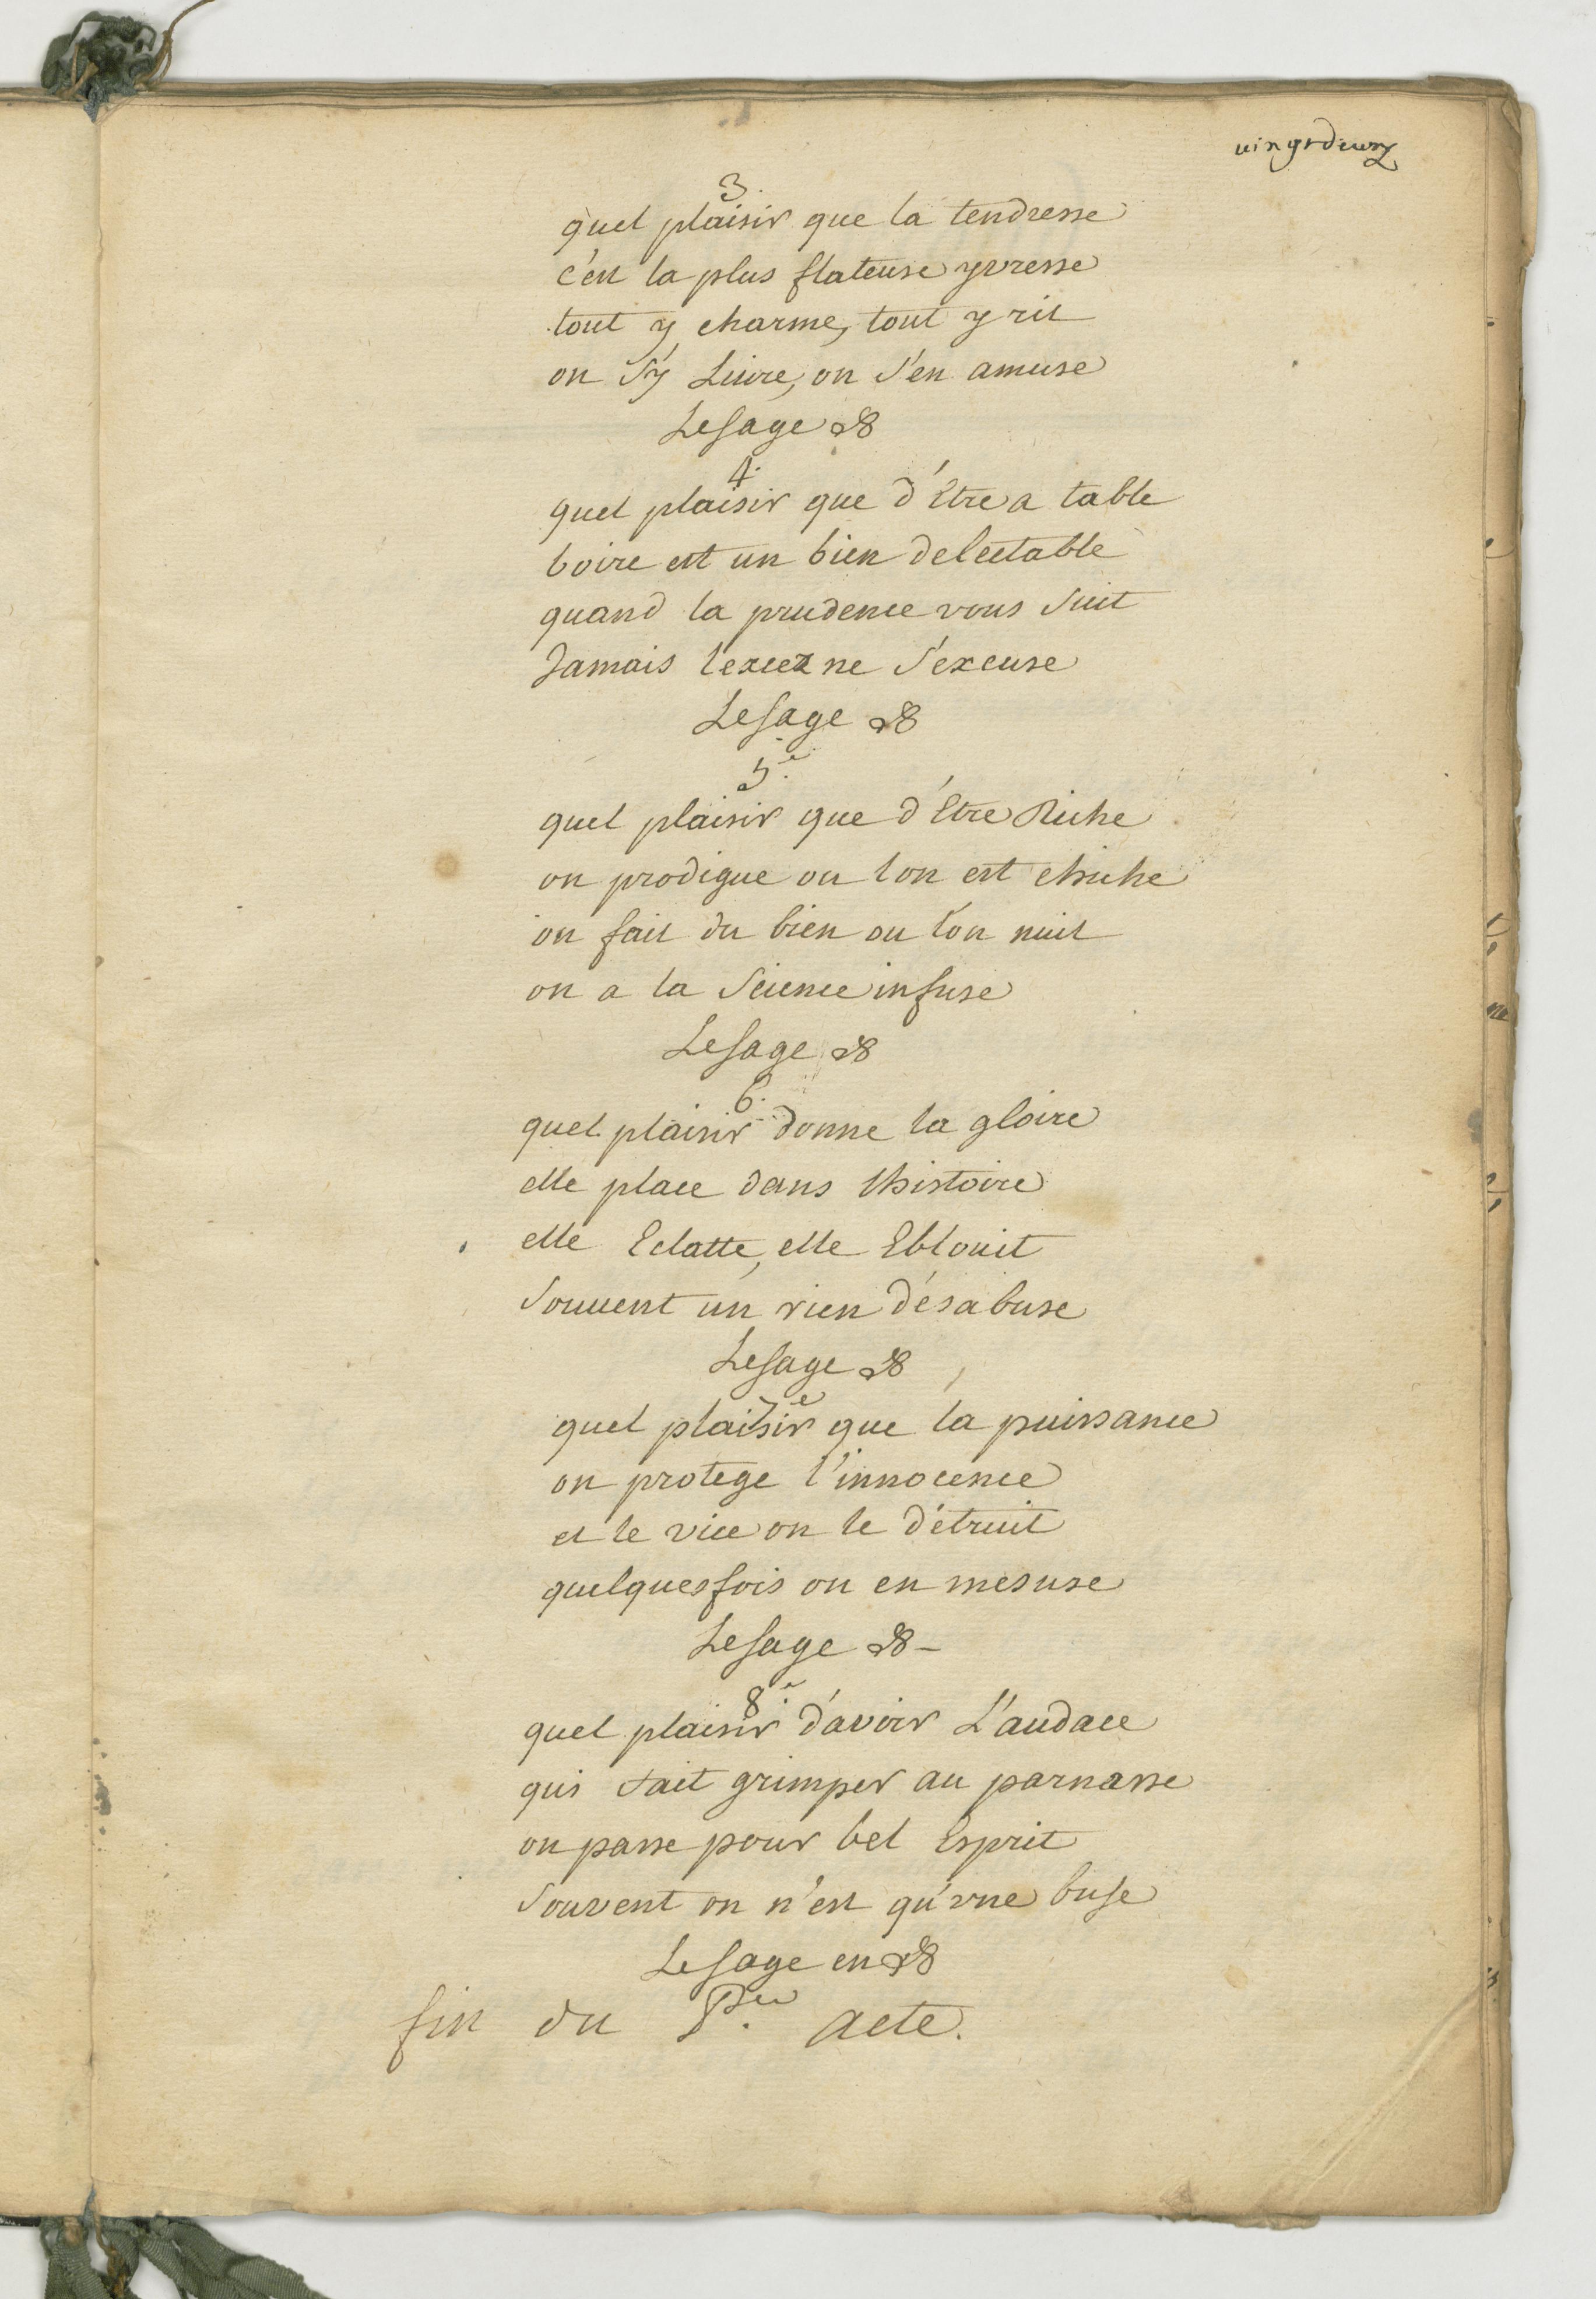 vingtdeux
3.
quel plaisir que la tendresse
c'est la plus flateuse yvresse
tout y charme, tout y rit
on s'y Livre, on s'en amuse
Le sage &
4.
quel plaisir que d'Etre a table
boire est un bien delectable
quand la prudence vous suit
Jamais l'excez ne s'excuse
Le sage &
5.e
quel plaisir que d'Etre Riche
on prodigue ou l'on est chiche
on fait du bien ou l'on nuit
on a la Science infuse
Le sage &
6.
quel plaisir donne la gloire
elle place dans l'histoire
elle Eclatte, elle Eblouit
souuent un rien désabuse
Le sage &
7e
quel plaisir que la puissance
on protege l'innocence
et le vice on le détruit
quelquesfois on en mesuse
Le sage &
8.e
quel plaisir d'avoir L'audace
qui fait grimper au parnasse
on passe pour bel Esprit
souvent on n'est qu'vne buse
Le sage en &
fin du P.er acte.